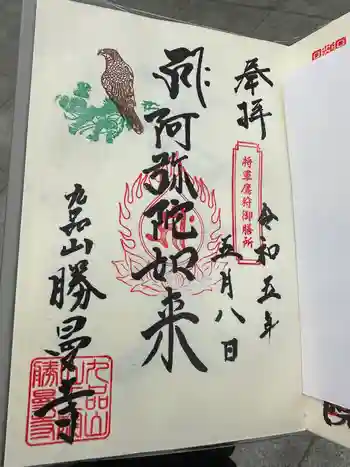 奉拝
将軍鷹狩御膳所
令和五年
五月八日
阿弥陀如来
九品山勝曼寺
九品山
勝曼寺